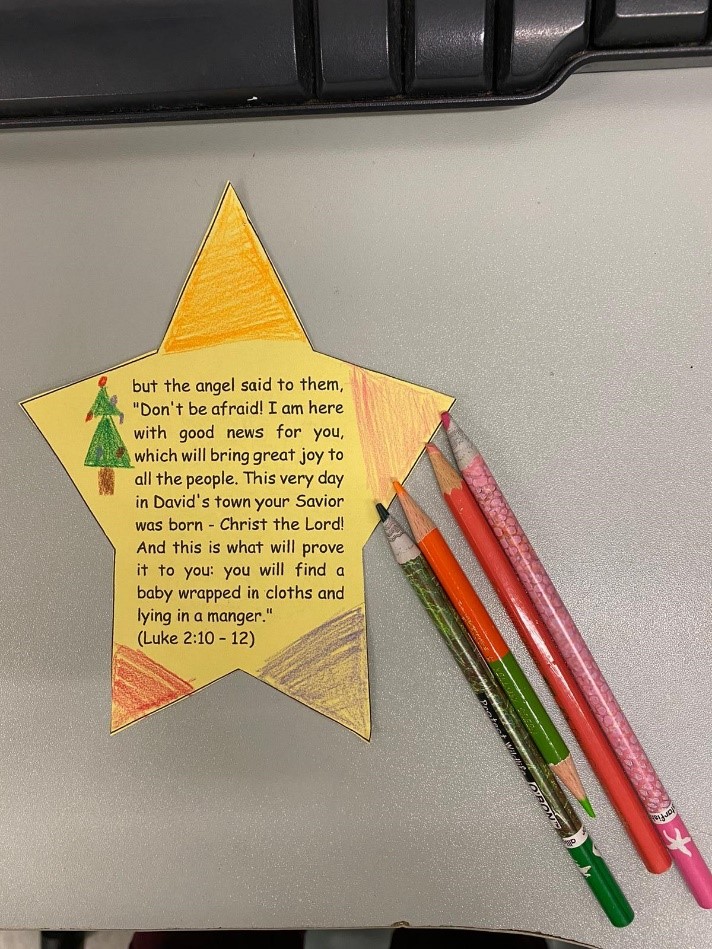 but the angel said to them,
"Don't be afraid! I am here
with good news for you,
which will bring great joy to
all the people. This very day
in David's town your Savior
was born - Christ the Lord!
And this is what will prove
it to you: you will find a
baby wrapped in cloths and
lying in a manger."
(Luke 2:10 – 12)